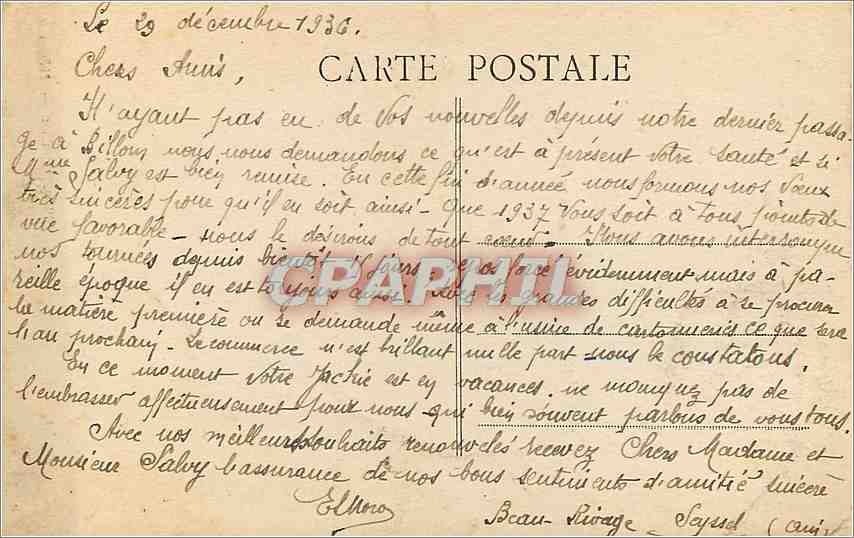 Le 29 décembre 1936.
Chers Amis,
CARTE POSTALE
N'ayant pas eu de Vos nouvelles depuis notre dernier passa-
ge à Billom nous nous demandons ce qu'est à présent Votre santé et si
Mme Salvy est bien remise. En cette fin d'année nous formons nos Vœux
très sincères pour qu'il en soit ainsi - Que 1937 Vous soit à tous points de
vue favorable - nous le désirons de tout cœur. Nous avons interrompu
nos tournées depuis bientôt jours, repos forcé évidemment mais à pa-
reille époque il en est toujours ainsi. Avec les grandes difficultés à se procurer
la matière première on se demande même à l'usine de cartonneries ce que sera
l'an prochain - Le commerce n'est brillant nulle part - nous le constatons.
En ce moment Votre est en vacances, ne manquez pas de
l'embrasser affectueusement pour nous - qui bien souvent parlons de vous tous.
Avec nos meilleurs souhaits renouvelés recevez Chers Madame et
Monsieur Salvy l'assurance de nos bons sentiments d'amitié sincère
Beau-Rivage - Seyssel (Ain)
CPAPHIL